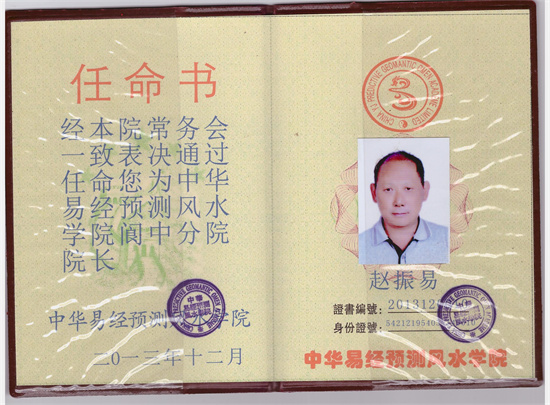 任命书
经本院常务会
一致表决通过
任命您为中华
易经预测风水
学院阆中分院
院长
中华易经预测风水学院
二〇一三年十二月
赵振易
證書編號:
身份證號:
中华易经预测风水学院